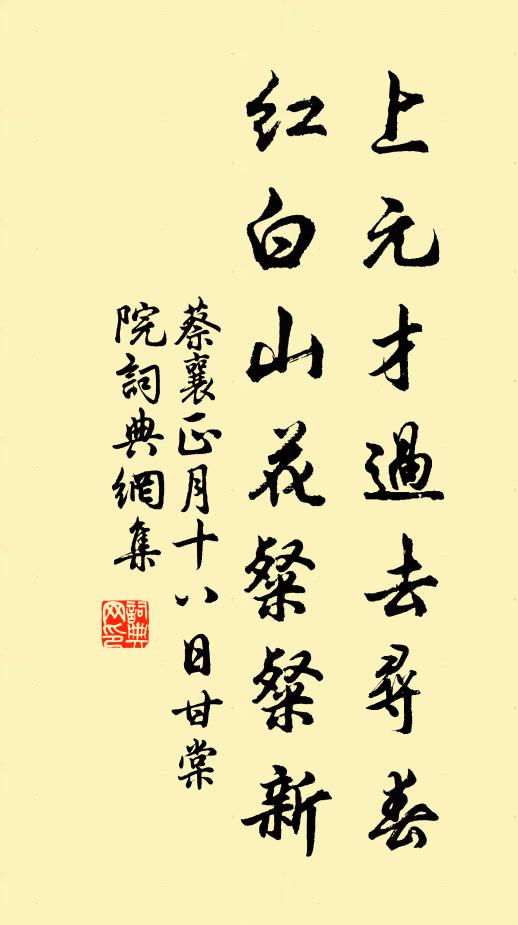 上元才過去尋春
紅白山花粲粲新
蔡襄正月十八日甘棠
院詞典網集
詞典
网印